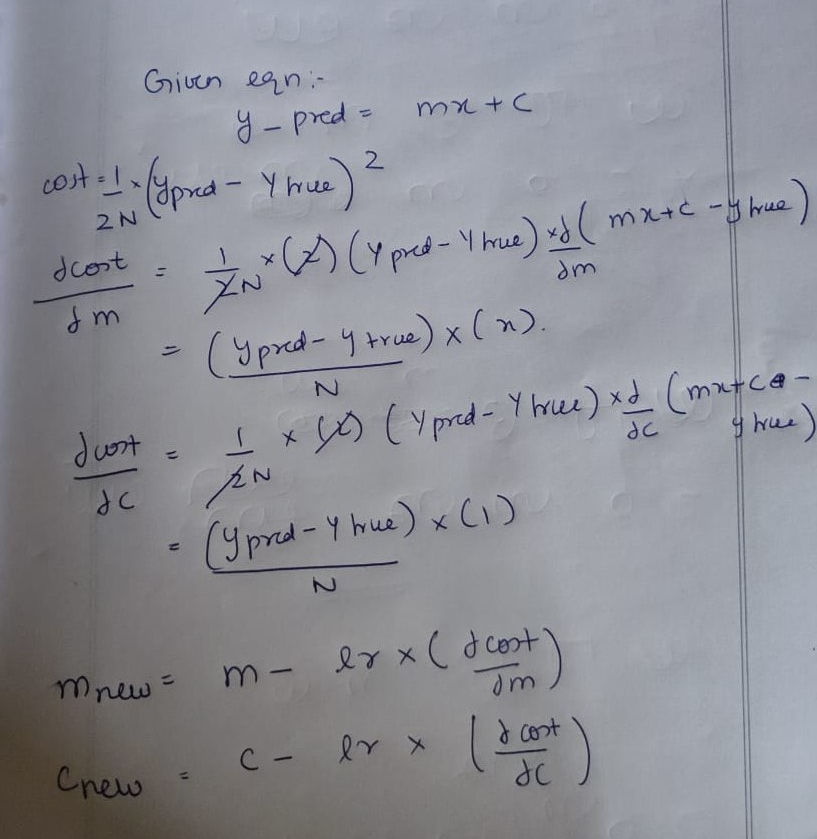 Given eqn:-
y_pred = mx + c
cost = 1/2N × (ypred - ytrue)^2
dcost/dm = 1/2N × (2) (ypred - ytrue) × d/dm (mx + c - ytrue)
= (ypred - ytrue)/N × (x).
dcost/dc = 1/2N × (2) (ypred - ytrue) × d/dc (mx + c - ytrue)
= (ypred - ytrue)/N × (1)
mnew = m - lr × (dcost/dm)
cnew = c - lr × (dcost/dc)